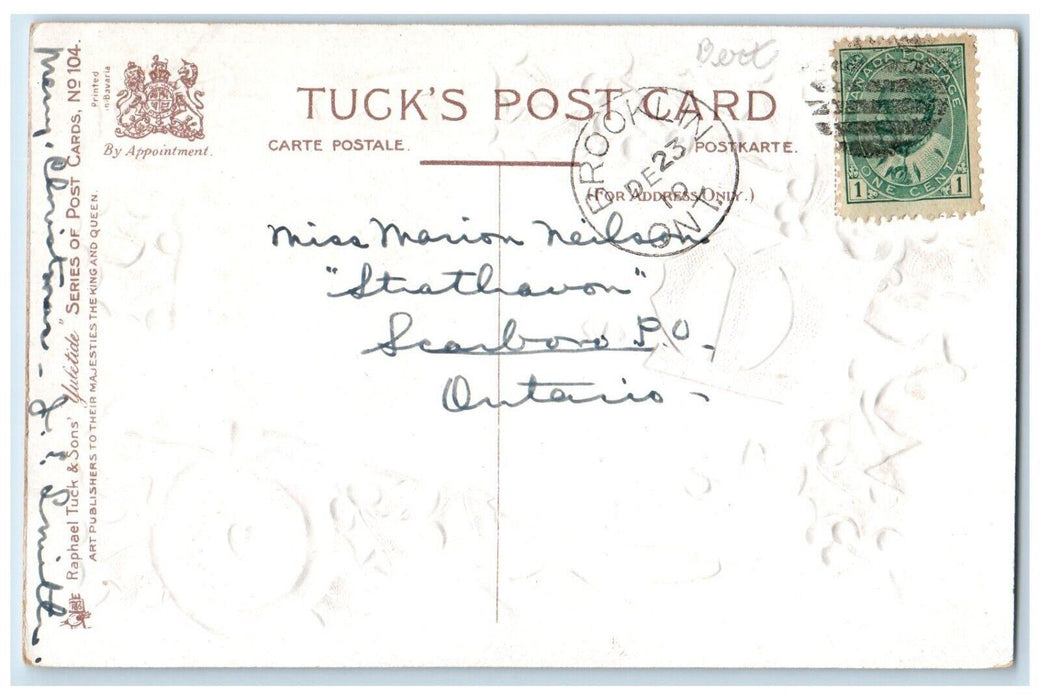 Bert
TUCK'S POST CARD
CARTE POSTALE.
POSTKARTE.
(FOR ADDRESS ONLY.)
By Appointment.
Printed
in Bavaria
BROOKLIN
DE 23
10
ONT
CANADA POSTAGE
1 ONE CENT 1
Miss Marion Neilson
"Strathavon"
Scarboro P.O.
Ontario -
Merry Christmas - J. E. Smith.
Raphael Tuck & Sons' "Yuletide" SERIES OF POST CARDS, No 104.
ART PUBLISHERS TO THEIR MAJESTIES THE KING AND QUEEN.